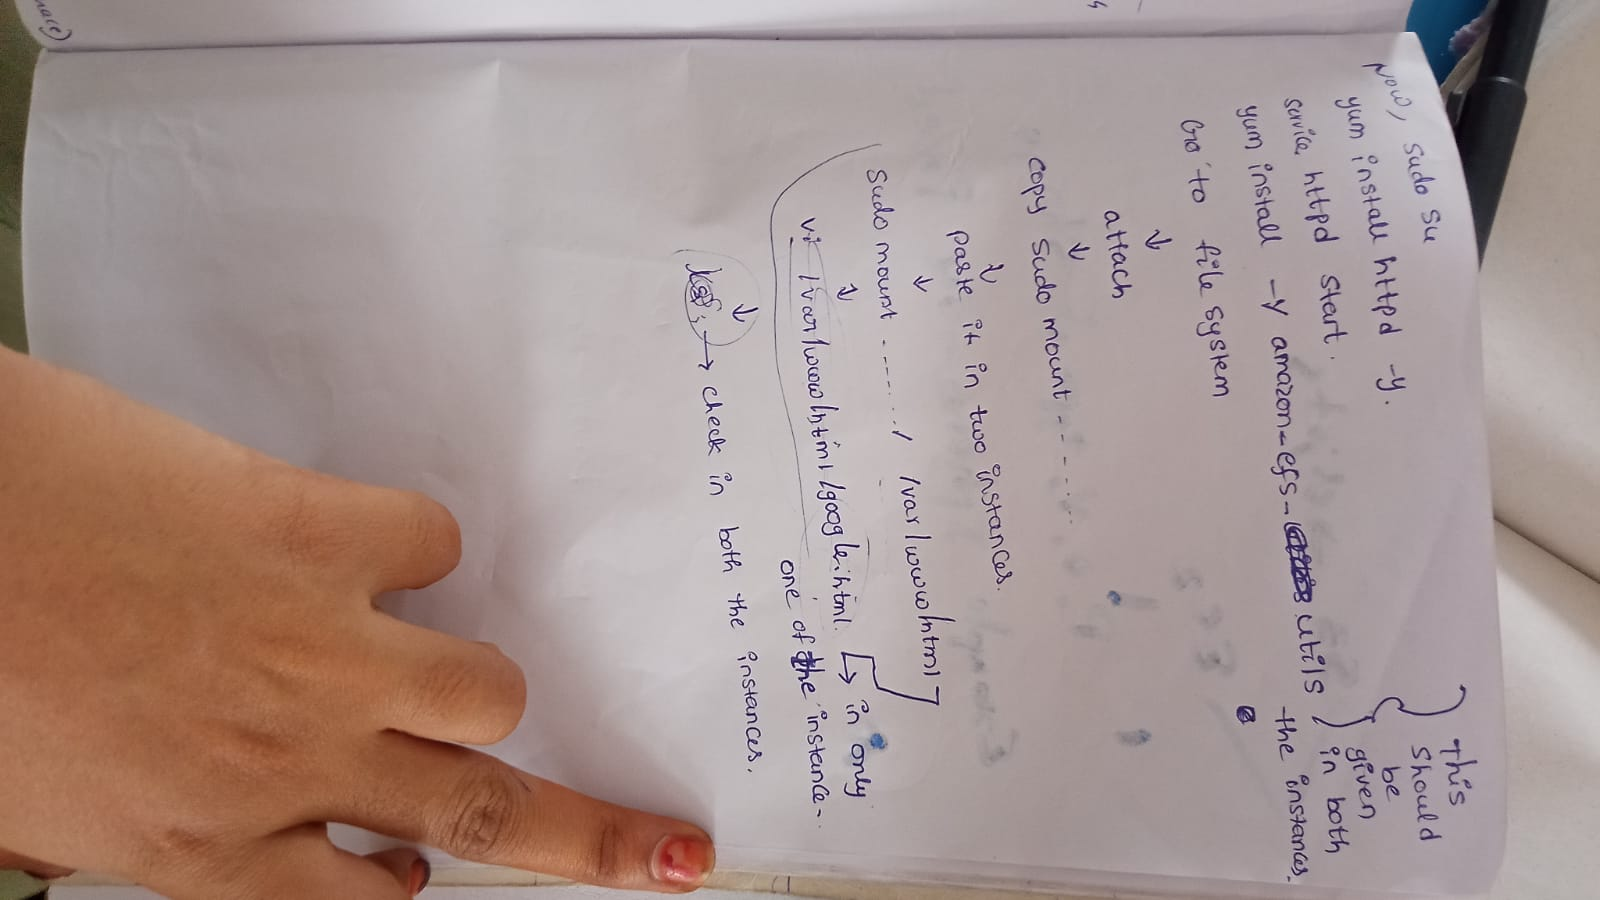 Now, sudo su
yum install httpd -y.
service httpd start.
yum install -y amazon-efs-utils
This
should
be
given
in both
the instances.
Go to file system
↓
attach
↓
copy sudo mount - - - - ....
↓
paste it in two instances.
↓
sudo mount - ...... / /var/www/html
↓
vi /var/www/html/google.html. ↳ in only
one of the instance-.
↓
→ check in both the instances.